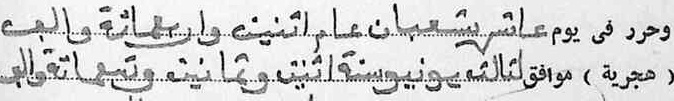 وحرر فى يوم عاشر شعبان عام اثنين واربعمائة والف
( هجرية ) موافق لثالثه يونيو سنة اثنين وثمانين وتسعمائة والف